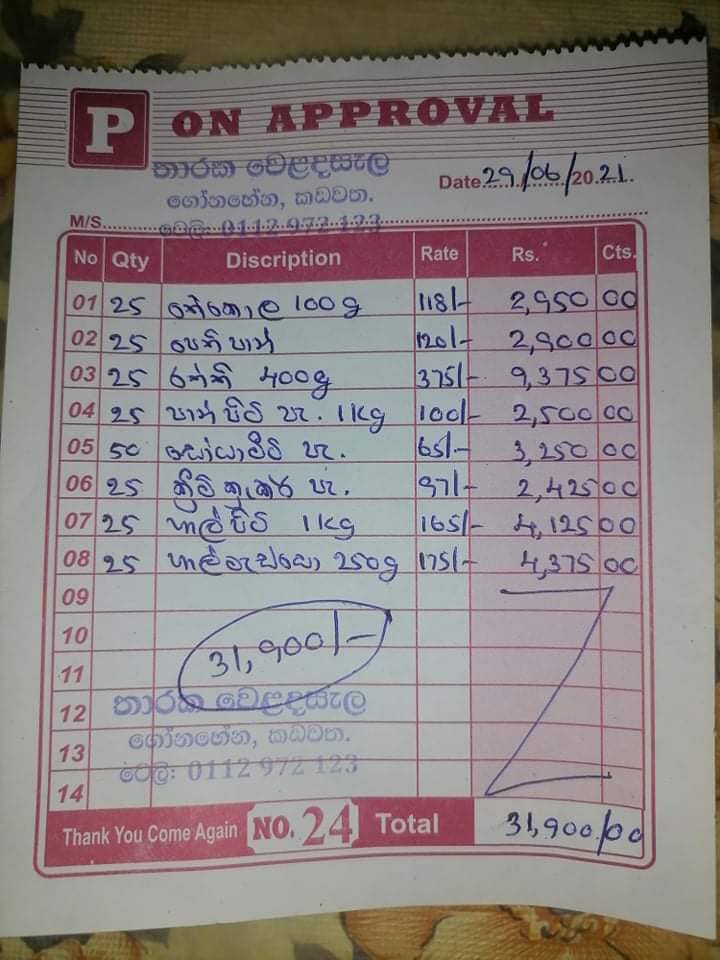 P ON APPROVAL
තාරක වෙළඳසැල
ගෝනහේන, කඩවත.
Date 29/06/2021
ටෙලි: 0112 972 123
M/S
No Qty Discription Rate Rs. Cts.
01 25 තේකොල 100g 118/- 2,950 00
02 25 පැනි පාන් 120/- 2,900 00
03 25 රත්ති 400g 375/- 9,375 00
04 25 පාන් පිටි පැ. 1Kg 100/- 2,500 00
05 50 සෝයාමීට් පැ. 65/- 3,250 00
06 25 ක්‍රීම් ක්‍රැකර් පැ. 97/- 2,425 00
07 25 හාල් පිටි 1Kg 165/- 4,125 00
08 25 හාල්මැස්සො 250g 175/- 4,375 00
09
10
31,900/-
11
12 තාරක වෙළඳසැල
ගෝනහේන, කඩවත.
13
ටෙලි: 0112 972 123
14
Thank You Come Again NO. 24 Total 31,900/00